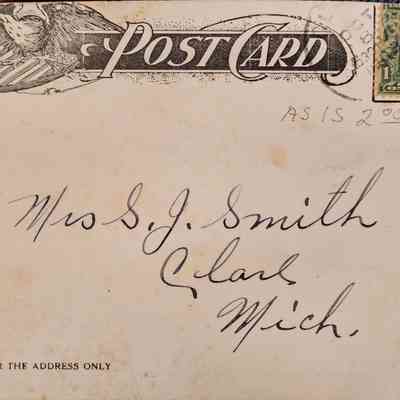 POST CARD
1
AS IS 2.00
Mrs S. J. Smith
Clare
Mich.
THE ADDRESS ONLY